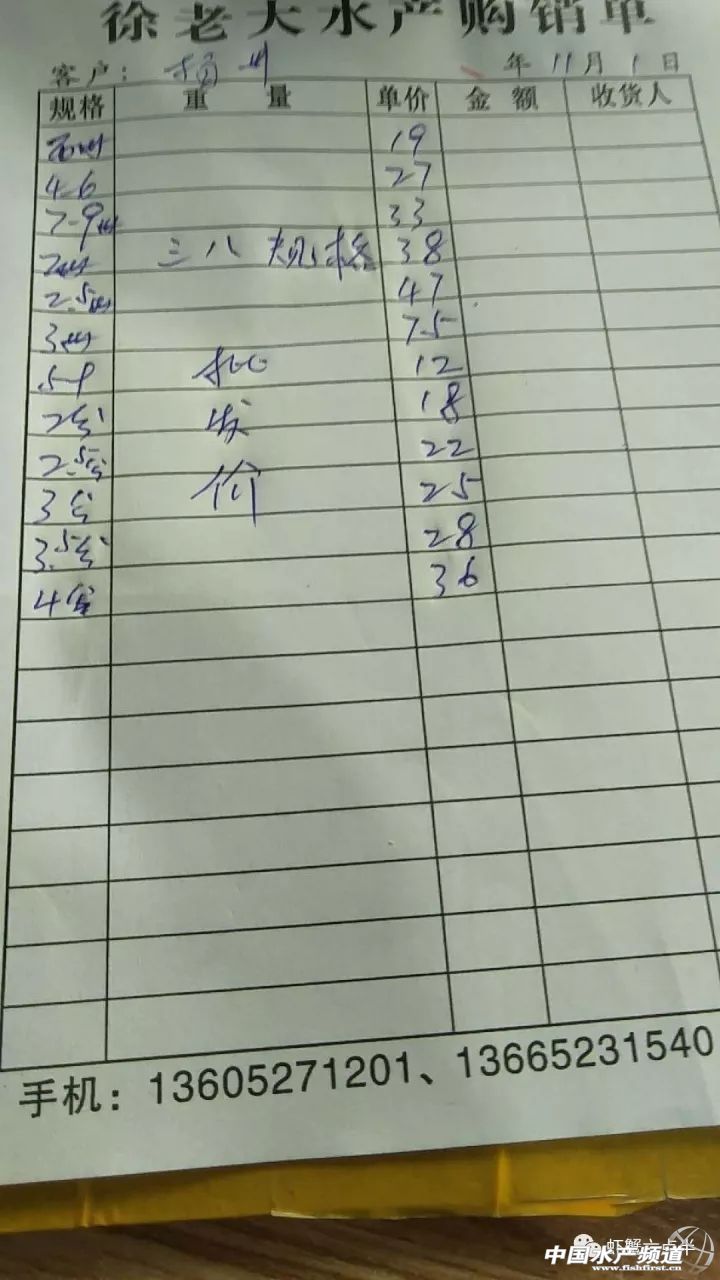 徐老大水产购销单
客户：扬州 年 11月 1日
规格 重 量 单价 金 额 收货人
19
4-6 27
7-9 33
三八规格 38
2.5 47
3 75
批 12
2 发 18
2.5 22
3 价 25
3.5 28
4 36
手机：13605271201、13665231540
虾蟹六点半
中国水产频道
www.fishfirst.cn